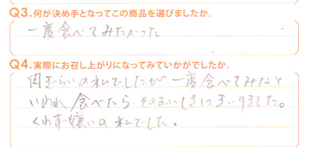 Q3.何が決め手となってこの商品を選びましたか。
一度食べてみたかった
Q4.実際にお召し上がりになってみていかがでしたか。
肉ぎらいの私でしたが一度食べてみなと
いわれ食べたらそのおいしさにまいりました。
くわず嫌いの私でした。